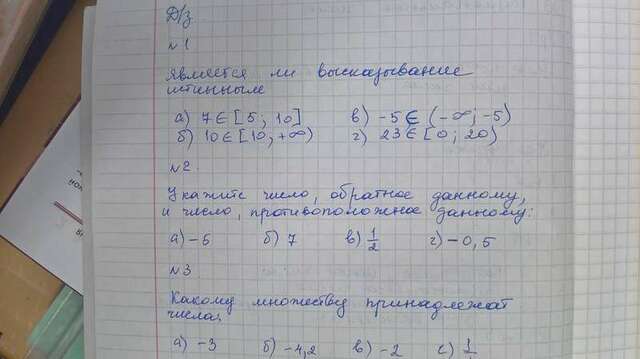 Д/з
№1
Является ли высказывание
истинным
а) 7∈[5; 10] в) -5∈(-∞; -5)
б) 10∈[10, +∞) г) 23∈[0; 20)
№2.
Укажите число, обратное данному,
и число, противоположное данному:
а) -5 б) 7 в) 1/2 г) -0,5
№3.
Какому множеству принадлежат
числа:
а) -3 б) -4,2 в) -2 с) 1